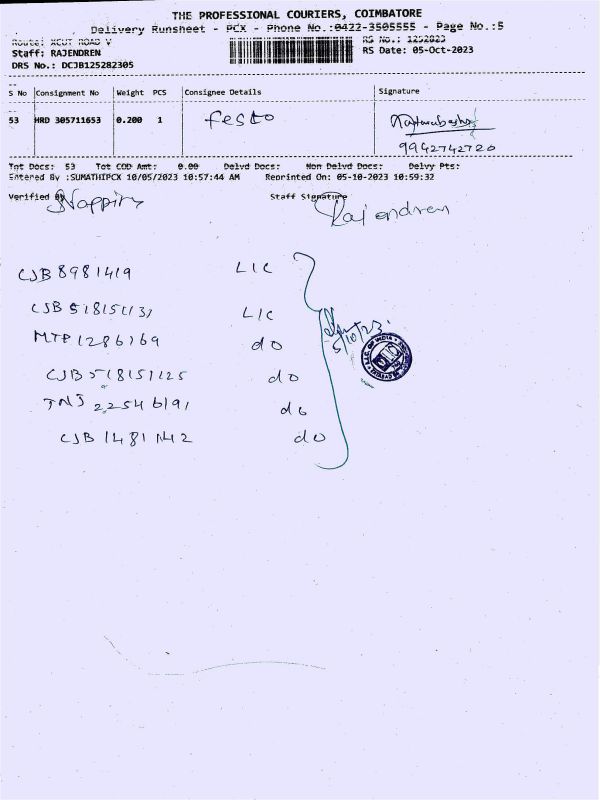 THE PROFESSIONAL COURIERS, COIMBATORE
Delivery Runsheet - PCX - Phone No.:0422-3505555 - Page No.:5
Route: ACUT ROAD V RS No.: 1252823
Staff: RAJENDREN RS Date: 05-Oct-2023
DRS No.: DCJB125282305
S No Consignment No Weight PCS Consignee Details Signature
53 HRD 305711653 0.200 1 festo
9942742720
Tot Docs: 53 Tot COD Amt: 0.00 Delvd Docs: Non Delvd Docs: Delvy Pts:
Entered By :SUMATHIPCX 10/05/2023 10:57:44 AM Reprinted On: 05-10-2023 10:59:32
Verified By Staff Signature
Rajendren
CJB 8981419 LIC
CJB 518151131 LIC
MTP 1286169 do
5/10/23
CJB 518151125 do
TNJ 22546191 do
CJB 1481142 do